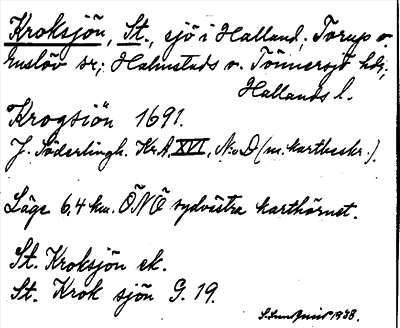 Kroksjön, St., sjö i Halland; Torup o.
Enslöv sr; Halmstads o. Tönnersjö hdr,
Hallands l.
Krogsjön 1691.
J. Söderlingh. Kr.A. XVI, No D (m. kartbeskr.).
Läge 6,4 km. ÖNÖ sydvästra karthörnet.
St. Kroksjön ek.
St. Krok sjön G. 19.
1938.